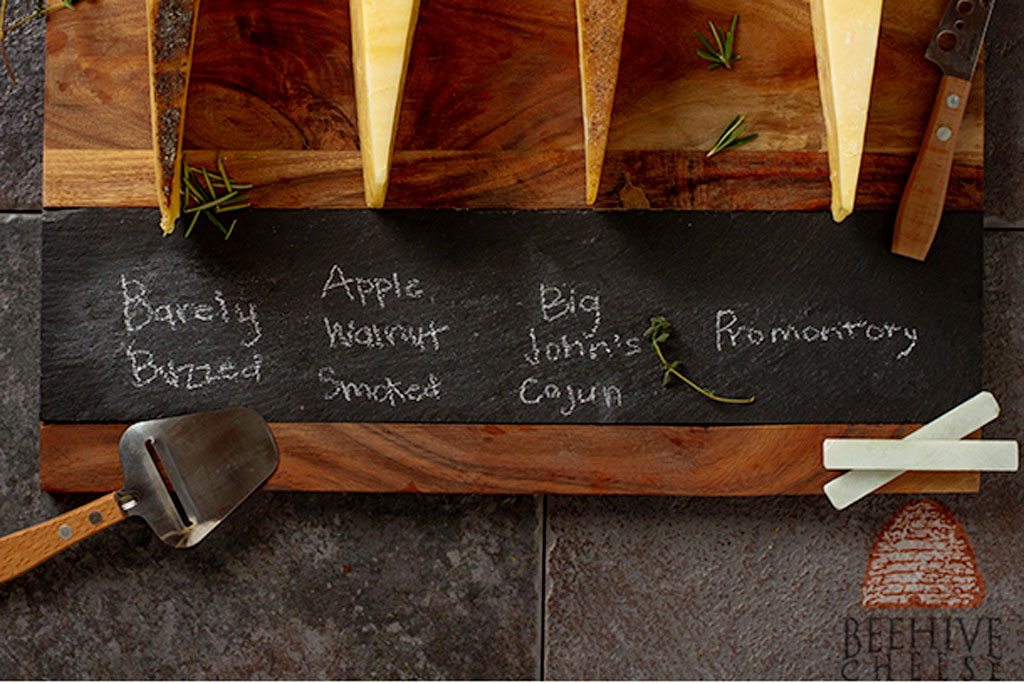 Barely
Buzzed
Apple
Walnut
Smoked
Big
John's
Cajun
Promontory
BEEHIVE
CHEESE